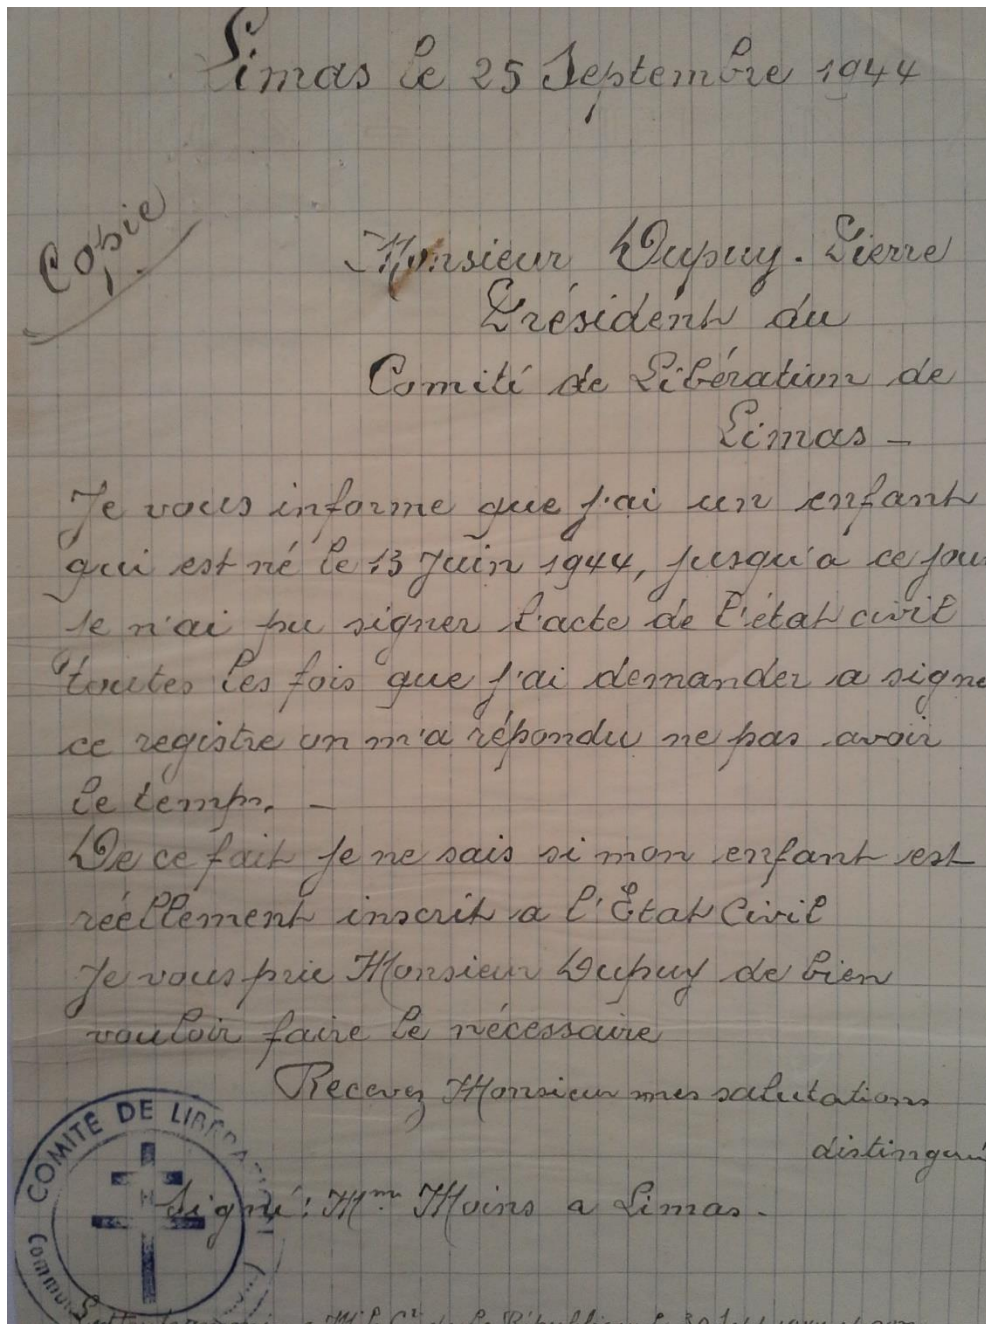 Limas le 25 Septembre 1944
Copie
Monsieur Dupuy. Pierre
Président du
Comité de Libération de
Limas -
Je vous informe que j'ai un enfant
qui est né le 13 Juin 1944, jusqu'a ce jou
Je n'ai pu signer l'acte de l'état civil
toutes les fois que j'ai demander a signe
ce registre on m'a répondu ne pas avoir
le temps. -
De ce fait Je ne sais si mon enfant est
réellement inscrit a l'État Civil
Je vous prie Monsieur Dupuy de bien
vouloir faire le nécessaire
Recevez Monsieur mes salutations
distingué
COMITÉ DE LIBÉRATION
Signé: Mme Moins a Limas.